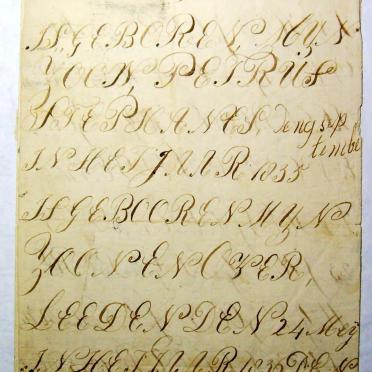 IS, GEBOREN, MYN
ZOON, PETRUS
STEPHANES, den 9 sep
tembe
IN HET JAAR 1835
IS GEBOOREN MYN
ZOON EN OVER,
LEEDEN DEN 24 Mey
IN HET JAAR 1835 DEN